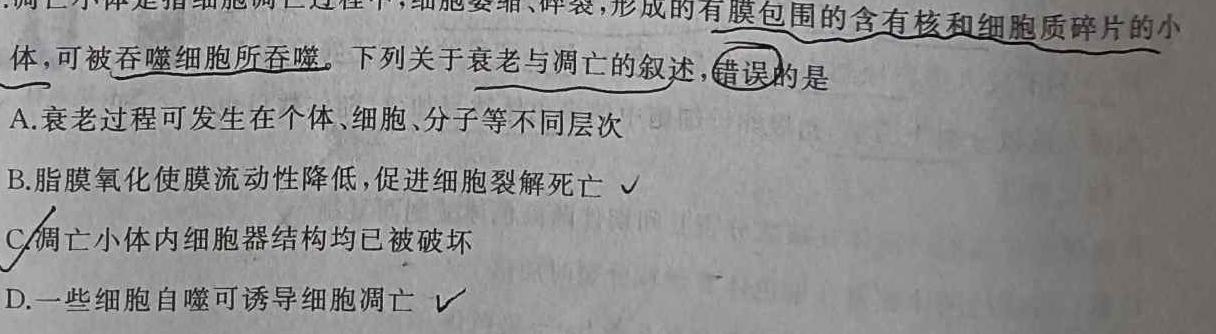 凋亡小体是指细胞凋亡过程中,细胞萎缩、碎裂,形成的有膜包围的含有核和细胞质碎片的小
体,可被吞噬细胞所吞噬。下列关于衰老与凋亡的叙述,错误的是
A.衰老过程可发生在个体、细胞、分子等不同层次
B.脂膜氧化使膜流动性降低,促进细胞裂解死亡 ✓
C.凋亡小体内细胞器结构均已被破坏
D.一些细胞自噬可诱导细胞凋亡 ✓